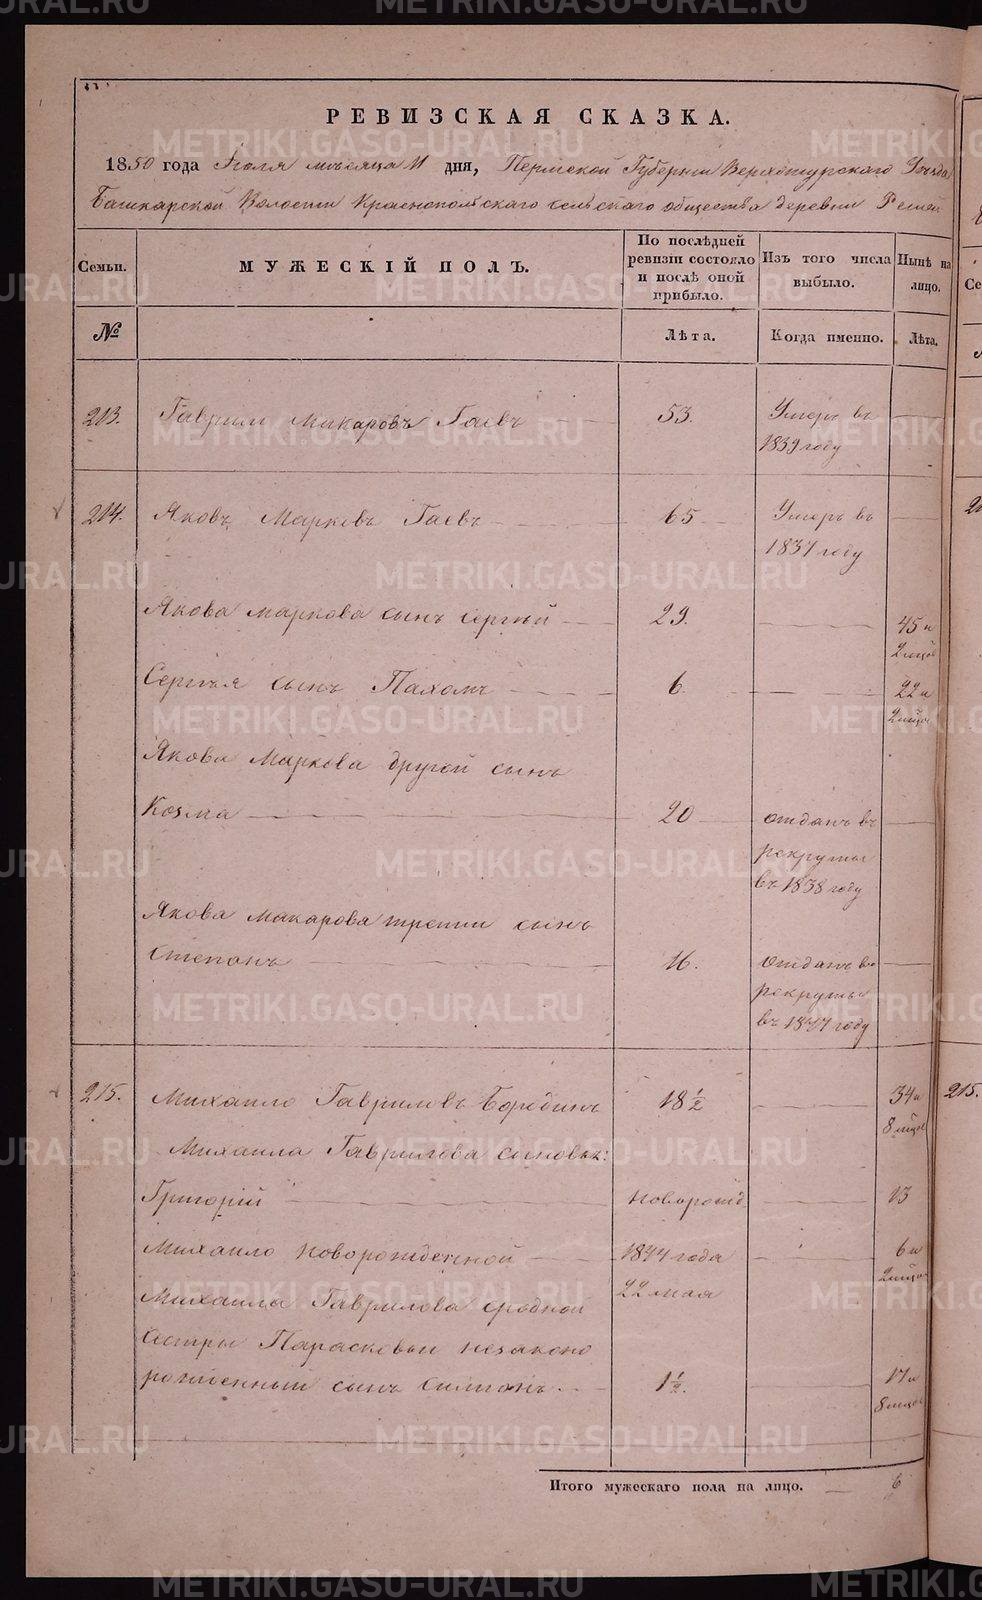 METRIKI.GASO-URAL.RU
РЕВИЗСКАЯ СКАЗКА.
1850 года Июля мѣсяца 11 дня, Пермской Губернiи Верхотурскаго Уѣзда
Башкарской Волости Краснопольскаго сельскаго общества деревни Решей
Семьи.
МУЖЕСКІЙ ПОЛЪ.
По послѣдней ревизіи состояло и послѣ оной прибыло.
Изъ того числа выбыло.
Нынѣ на лицо.
№
Лѣта.
Когда именно.
Лѣта.
213. Гаврило Макаровъ Гаевъ 53. Умеръ въ
1839 году
214. Яковъ Марковъ Гаевъ 65 Умеръ въ
1837 году
Якова Маркова сынъ Сергѣй 29. 45 и
2 мцов
Сергѣя сынъ Пахомъ 6 22 и
2 мцов
Якова Маркова другой сынъ
Козма 20 отданъ въ
рекруты
въ 1838 году
Якова Макарова третiй сынъ
Степанъ 16. отданъ въ
рекруты
въ 1847 году
215. Михаило Гавриловъ Бородинъ 18 1/2 34 и
8 мцов
215.
Михаила Гаврилова сыновья:
Григорій новорожд 13
Михаило новорожденной 1844 года 6 и
22 мая 2 мцов
Михаила Гаврилова сродной
сестры Парасковьи незаконо
рожденный сынъ Симионъ 1 1/2. 17 и
8 мцов
Итого мужескаго пола на лицо. 6